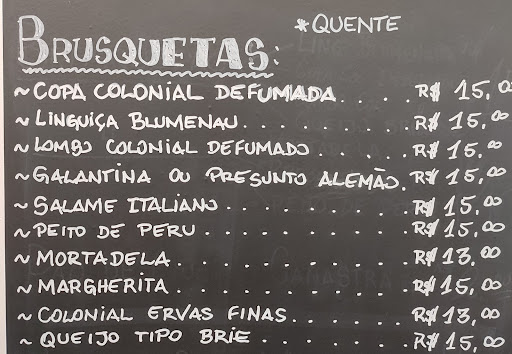 *QUENTE
BRUSQUETAS:
~COPA COLONIAL DEFUMADA.... R$ 15,00
~LINGUIÇA BLUMENAU......... R$ 15,00
~LOMBO COLONIAL DEFUMADO.... R$ 15,00
~GALANTINA OU PRESUNTO ALEMÃO. R$ 15,00
~SALAME ITALIANO.......... R$ 15,00
~PEITO DE PERU........... R$ 15,00
~MORTADELA............ R$ 13,00
~MARGHERITA............ R$ 15,00
~COLONIAL ERVAS FINAS...... R$ 13,00
~QUEIJO TIPO BRIE........ R$ 15,00